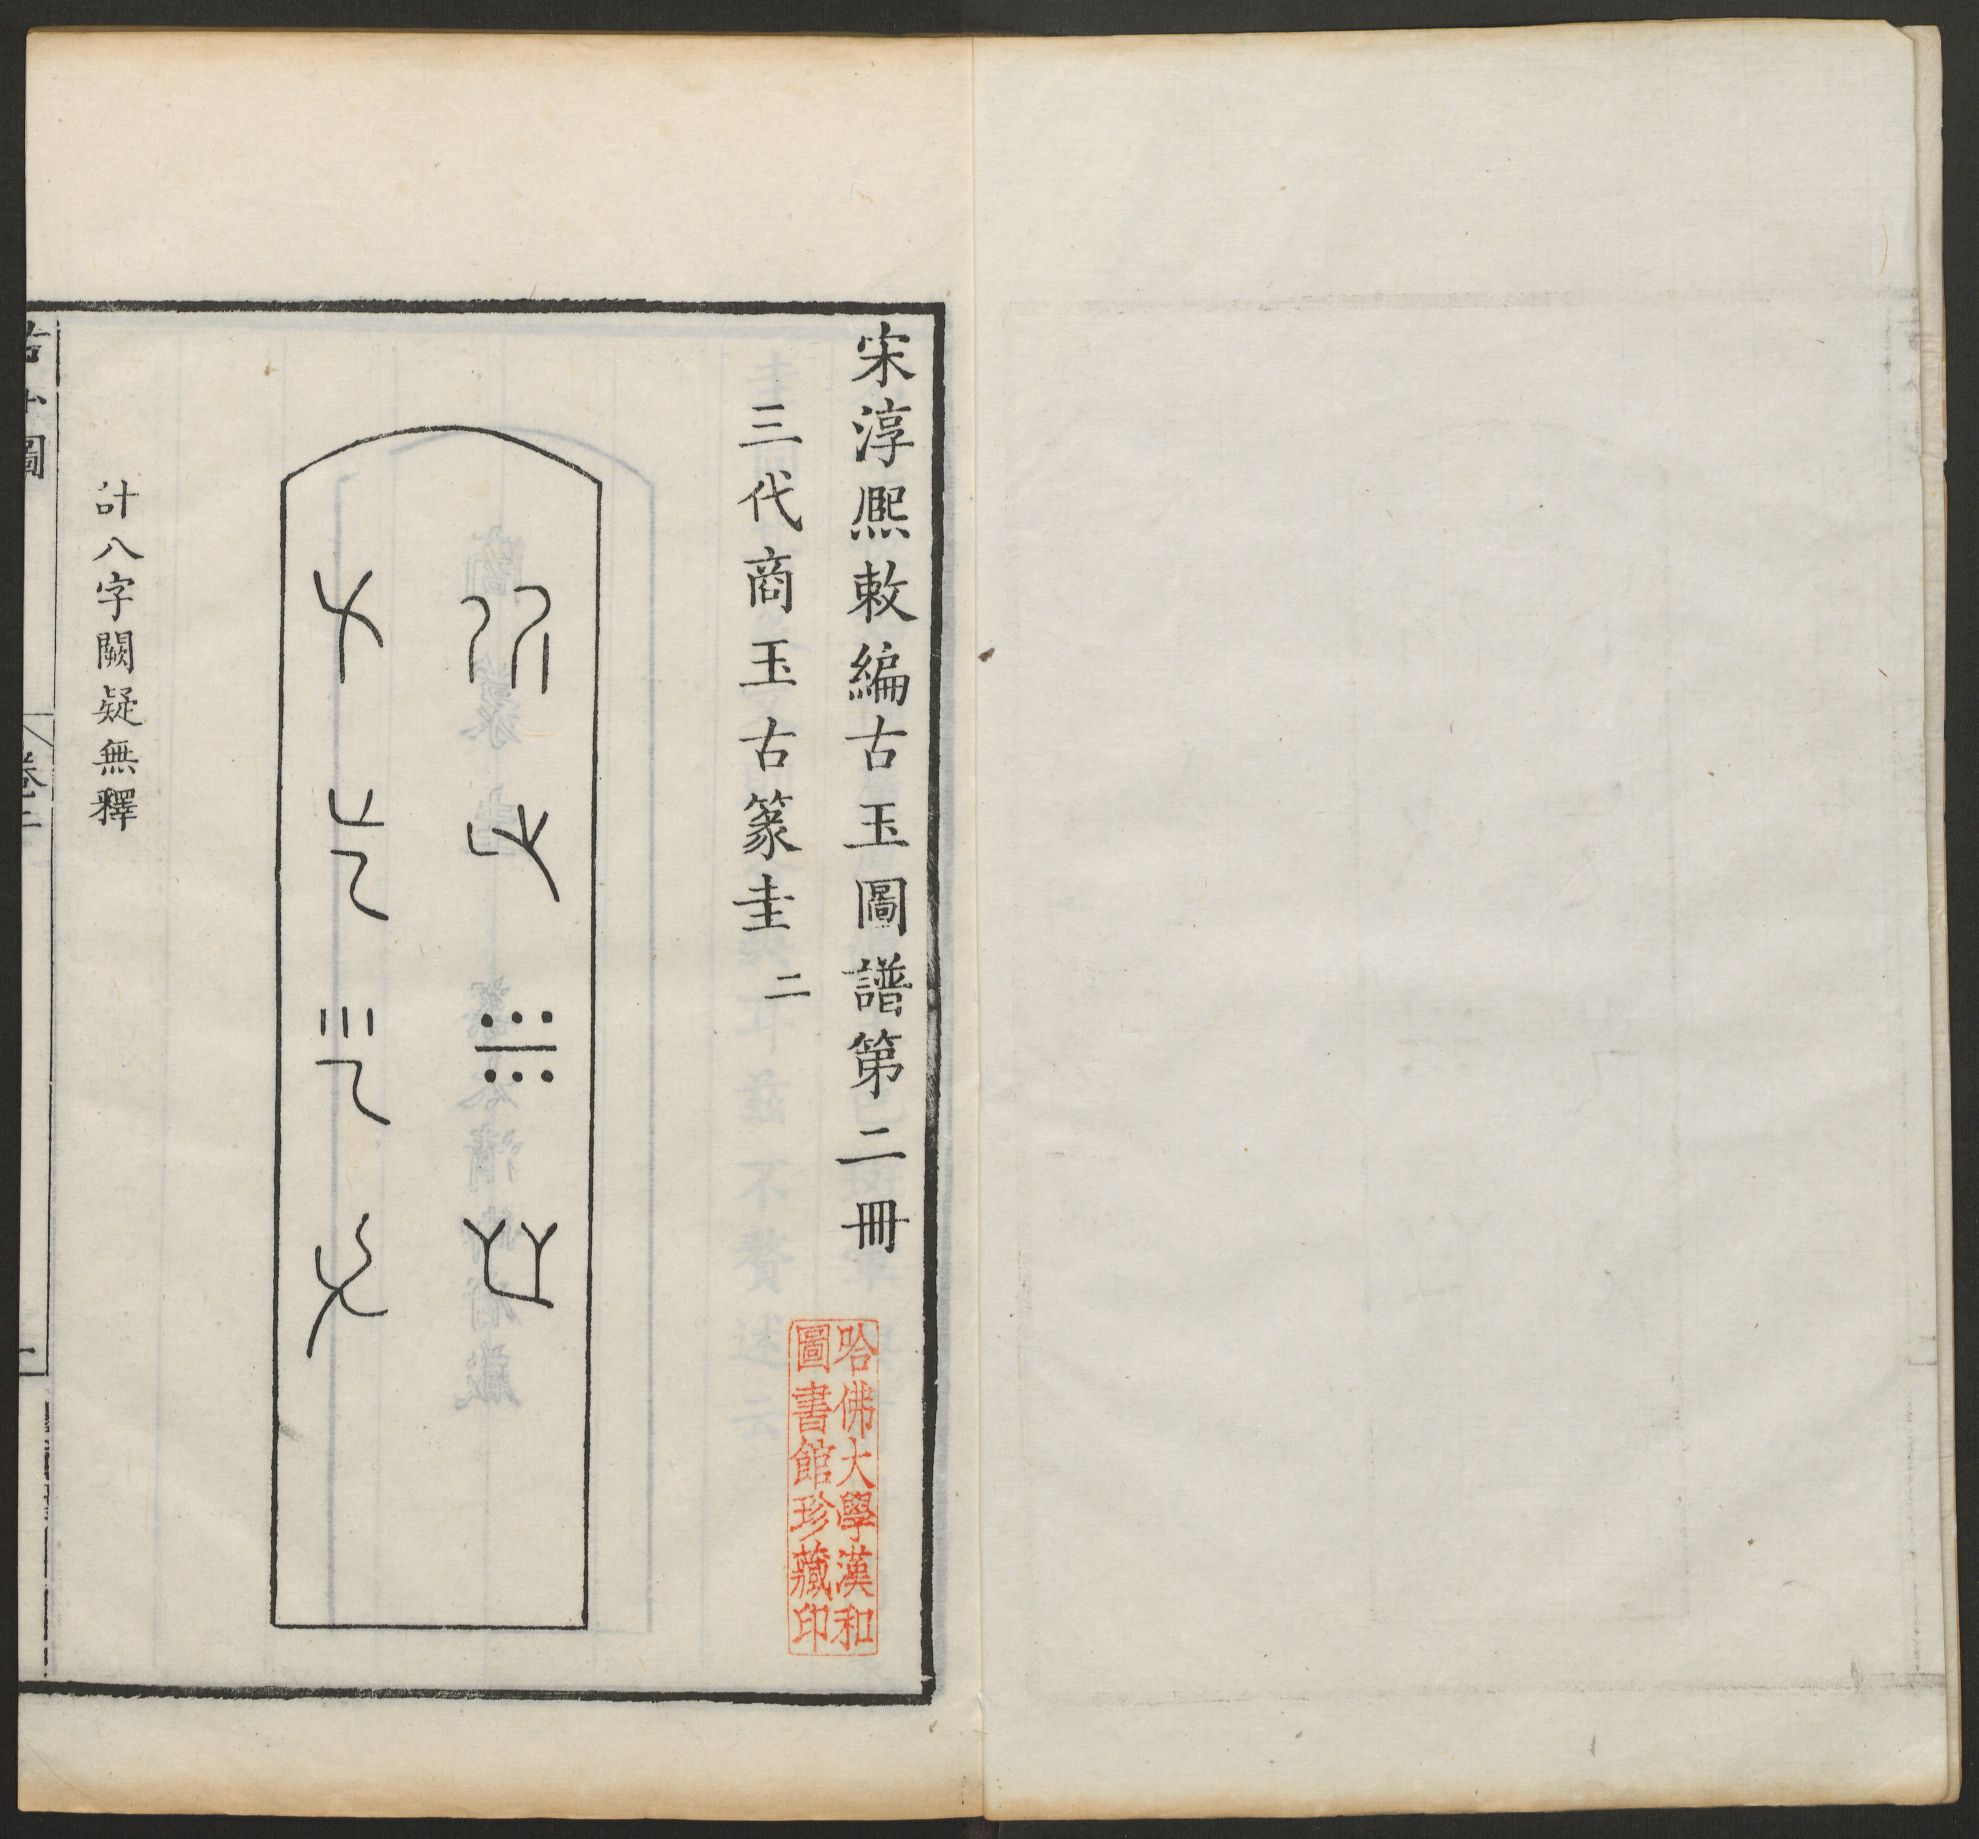 宋淳熙敕編古玉圖譜第二冊
三代商玉古篆圭二
計八字闕疑無釋
哈佛大學漢和
圖書館珍藏印